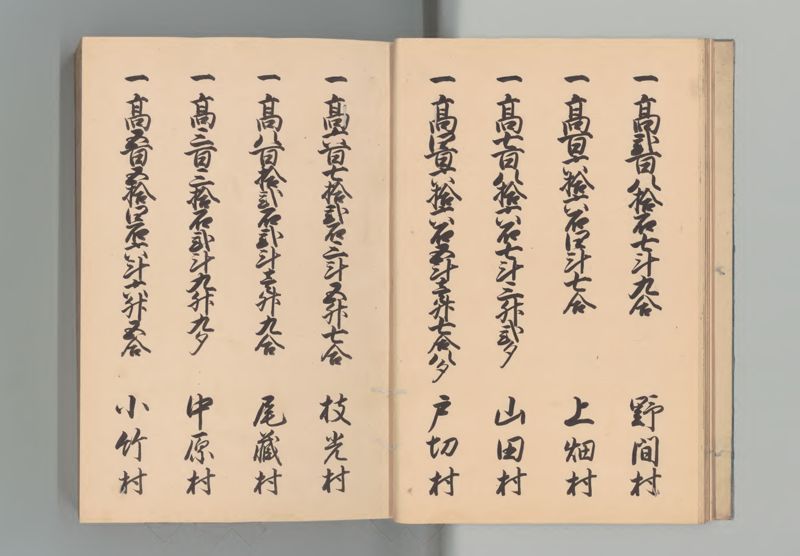 一 高弐百八拾石七斗九合 野間村
一 高百六拾六石四斗七合 上畑村
一 高七百八拾六石七斗三升弐夕 山田村
一 高四百六拾六石五斗壱升七合八夕 戸切村
一 高六百七拾弐石三斗五升七合 枝光村
一 高八百拾弐石弐斗壱升九合 尾蔵村
一 高三百三拾石弐斗九升九夕 中原村
一 高五百五拾四石六斗六升五合 小竹村